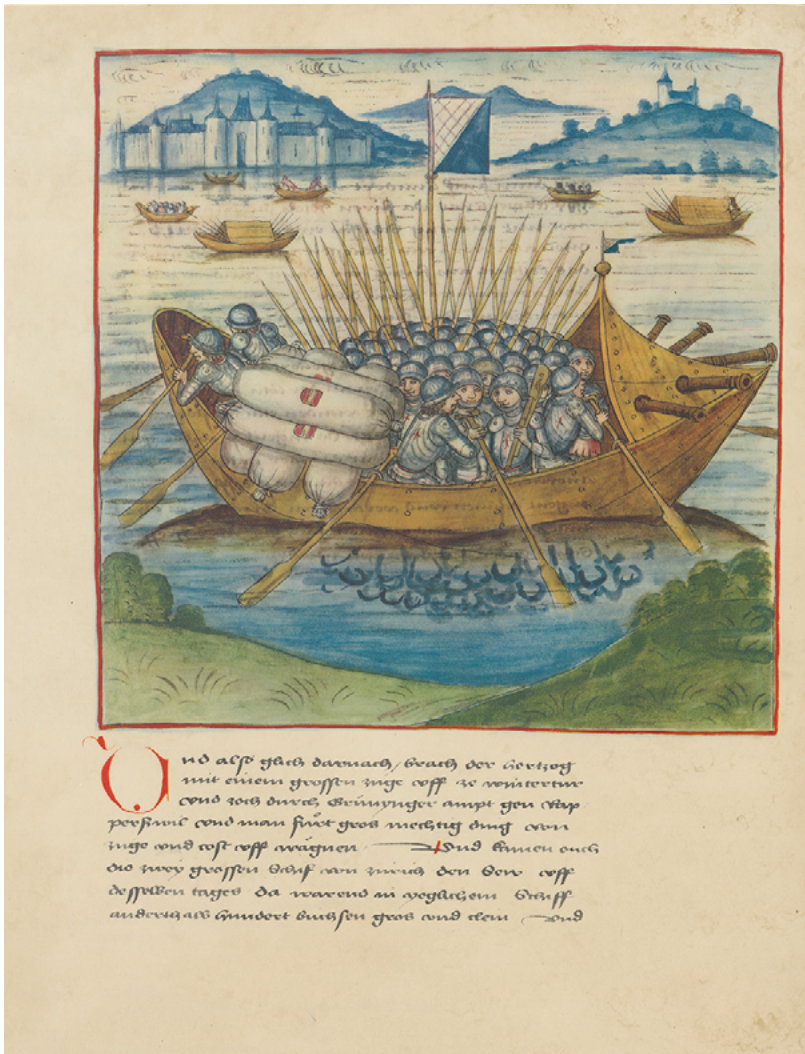 Und also glich darnach / brach der hertzog
mit einem grossen zuge uff ze wintertur
und zoch durch Grünynger ampt gen Rap
perswil und man fürt gros mechtig ding von
zuge und cost uff wägnen Und kamen ouch
die zwey grossen Schif von zürich den Sew uff
desselben tages da warend in yeglichem Schiff
anderthalb hundert büchsen gros und clein und